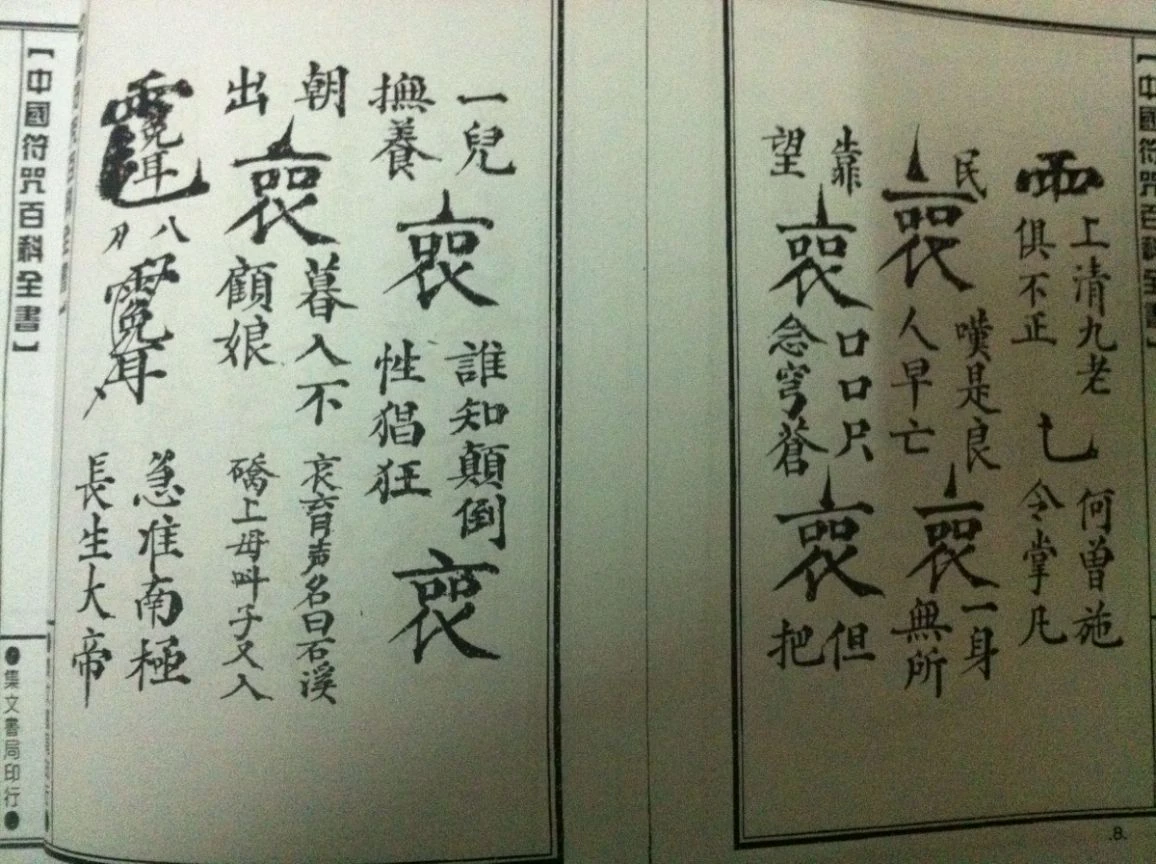 【中國符咒百科全書】
上清九老
俱不正
何曾施
令掌凡
民
喪
嘆是良
人早亡
喪
一身
無所
靠
望
喪
口口尺
念穹蒼
喪
但
把
.8.
一兒
撫養
喪
誰知顛倒
性猖狂
喪
朝
出
喪
暮入不
顧娘
哀育声名曰石溪
礄上母叫子又入
八
急准南極
長生大帝
【中國符咒百科全書】
●集文書局印行●